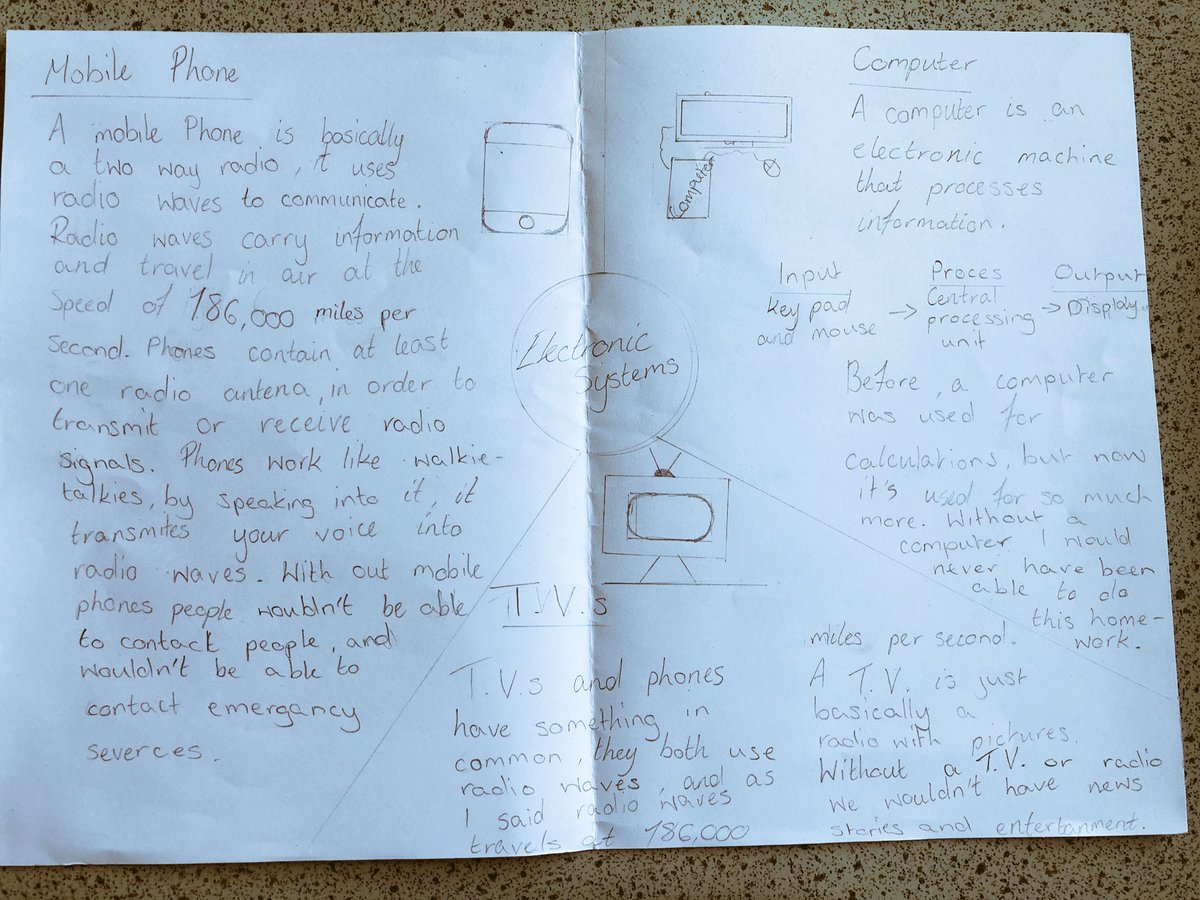 Mobile Phone
A mobile Phone is basically
a two way radio, it uses
radio waves to communicate.
Radio waves carry information
and travel in air at the
Speed of 186,000 miles per
Second. Phones contain at least
one radio antena, in order to
transmit or receive radio
signals. Phones work like walkie-
talkies, by speaking into it, it
transmites your voice into
radio waves. With out mobile
phones people wouldn't be able
to contact people, and
wouldn't be able to
contact emergancy
severces.
Computer
Electronic
Systems
Computer
A computer is an
electronic machine
that processes
information.
Input Proces Output
key pad and mouse → Central processing unit → Display
Before, a computer
was used for
calculations, but now
it's used for so much
more. Without a
computer I would
never have been
able to do
this home-
work.
T.V.s
T.V.s and phones
have something in
common, they both use
radio waves, and as
I said radio waves
travels at 186,000
miles per second.
A T.V. is just
basically a
radio with pictures.
Without a T.V. or radio
we wouldn't have news
stories and entertanment.